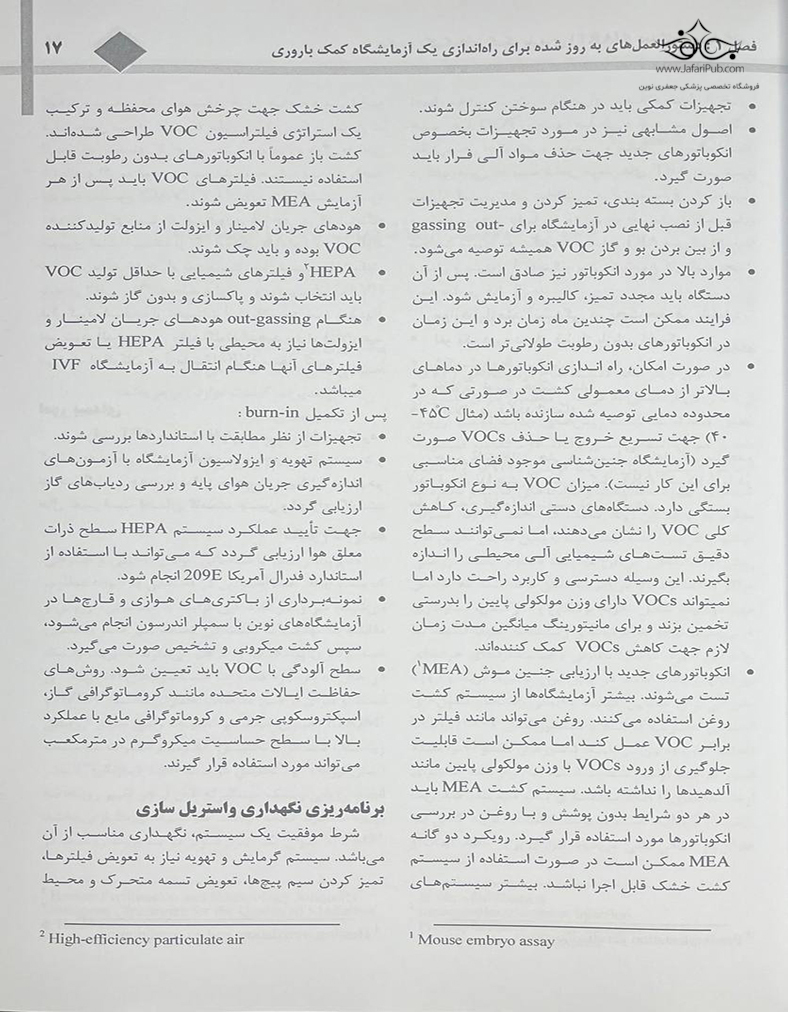 فصل ۱: دستورالعمل‌های به روز شده برای راه‌اندازی یک آزمایشگاه کمک باروری
۱۷
www.JafariPub.com
فروشگاه تخصصی پزشکی جعفری نوین
• تجهیزات کمکی باید در هنگام سوختن کنترل شوند.
• اصول مشابهی نیز در مورد تجهیزات بخصوص
انکوباتورهای جدید جهت حذف مواد آلی فرار باید
صورت گیرد.
• باز کردن بسته بندی، تمیز کردن و مدیریت تجهیزات
قبل از نصب نهایی در آزمایشگاه برای gassing out-
و از بین بردن بو و گاز VOC همیشه توصیه می‌شود.
• موارد بالا در مورد انکوباتور نیز صادق است. پس از آن
دستگاه باید مجدد تمیز، کالیبره و آزمایش شود. این
فرایند ممکن است چندین ماه زمان برد و این زمان
در انکوباتورهای بدون رطوبت طولانی‌تر است.
• در صورت امکان، راه اندازی انکوباتورها در دماهای
بالاتر از دمای معمولی کشت در صورتی که در
محدوده دمایی توصیه شده سازنده باشد (مثال ۴۵℃-
۴۰) جهت تسریع خروج یا حذف VOCs صورت
گیرد (آزمایشگاه جنین‌شناسی موجود فضای مناسبی
برای این کار نیست). میزان VOC به نوع انکوباتور
بستگی دارد. دستگاه‌های دستی اندازه‌گیری، کاهش
کلی VOC را نشان می‌دهند، اما نمی‌توانند سطح
دقیق تست‌های شیمیایی آلی محیطی را اندازه
بگیرند. این وسیله دسترسی و کاربرد راحت دارد اما
نمیتواند VOCs دارای وزن مولکولی پایین را بدرستی
تخمین بزند و برای مانیتورینگ میانگین مدت زمان
لازم جهت کاهش VOCs کمک کننده‌اند.
• انکوباتورهای جدید با ارزیابی جنین موش (MEA¹)
تست می‌شوند. بیشتر آزمایشگاه‌ها از سیستم کشت
روغن استفاده می‌کنند. روغن می‌تواند مانند فیلتر در
برابر VOC عمل کند اما ممکن است قابلیت
جلوگیری از ورود VOCs با وزن مولکولی پایین مانند
آلدهیدها را نداشته باشد. سیستم کشت MEA باید
در هر دو شرایط بدون پوشش و با روغن در بررسی
انکوباتورها مورد استفاده قرار گیرد. رویکرد دو گانه
MEA ممکن است در صورت استفاده از سیستم
کشت خشک قابل اجرا نباشد. بیشتر سیستم‌های
¹ Mouse embryo assay
کشت خشک جهت چرخش هوای محفظه و ترکیب
یک استراتژی فیلتراسیون VOC طراحی شده‌اند.
کشت باز عموماً با انکوباتورهای بدون رطوبت قابل
استفاده نیستند. فیلترهای VOC باید پس از هر
آزمایش MEA تعویض شوند.
• هودهای جریان لامینار و ایزولت از منابع تولیدکننده
VOC بوده و باید چک شوند.
• HEPA² و فیلترهای شیمیایی با حداقل تولید VOC
باید انتخاب شوند و پاکسازی و بدون گاز شوند.
• هنگام out-gassing هودهای جریان لامینار و
ایزولت‌ها نیاز به محیطی با فیلتر HEPA یا تعویض
فیلترهای آنها هنگام انتقال به آزمایشگاه IVF
میباشد.
پس از تکمیل burn-in :
• تجهیزات از نظر مطابقت با استانداردها بررسی شوند.
• سیستم تهویه و ایزولاسیون آزمایشگاه با آزمون‌های
اندازه‌گیری جریان هوای پایه و بررسی ردیاب‌های گاز
ارزیابی گردد.
• جهت تأیید عملکرد سیستم HEPA سطح ذرات
معلق هوا ارزیابی گردد که می‌تواند با استفاده از
استاندارد فدرال آمریکا 209E انجام شود.
• نمونه‌برداری از باکتری‌های هوازی و قارچ‌ها در
آزمایشگاه‌های نوین با سمپلر اندرسون انجام می‌شود،
سپس کشت میکروبی و تشخیص صورت می‌گیرد.
• سطح آلودگی با VOC باید تعیین شود. روش‌های
حفاظت ایالات متحده مانند کروماتوگرافی گاز،
اسپکتروسکوپی جرمی و کروماتوگرافی مایع با عملکرد
بالا با سطح حساسیت میکروگرم در مترمکعب
می‌تواند مورد استفاده قرار گیرند.
برنامه‌ریزی نگهداری واستریل سازی
شرط موفقیت یک سیستم، نگهداری مناسب از آن
می‌باشد. سیستم گرمایش و تهویه نیاز به تعویض فیلترها،
تمیز کردن سیم پیچ‌ها، تعویض تسمه متحرک و محیط
² High-efficiency particulate air